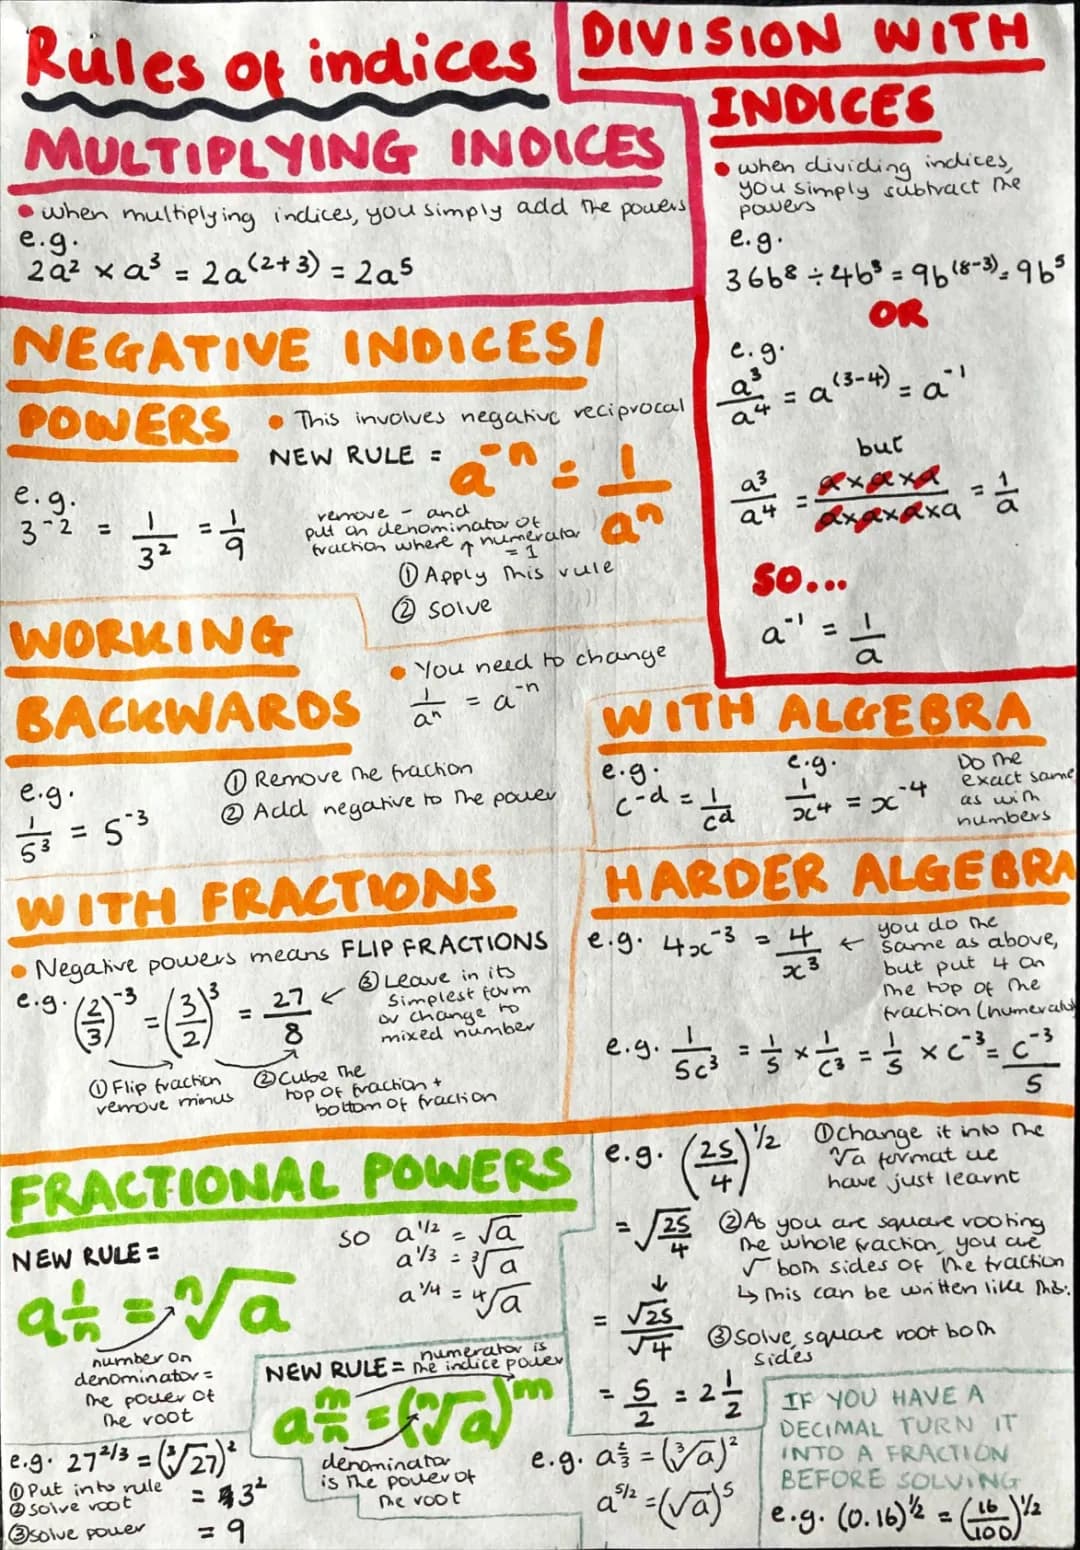 Rules of indices
MULTIPLYING INDICES
• when multiplying indices, you simply add the powers
e.g.
2a² × a³ = 2a⁽²⁺³⁾ = 2a⁵
DIVISION WITH
INDICES
• when dividing indices,
you simply subtract the
powers
e.g.
36b⁸ ÷ 4b³ = 9b⁽⁸⁻³⁾ = 9b⁵
OR
e.g.
a³/a⁴ = a⁽³⁻⁴⁾ = a⁻¹
but
a³/a⁴ = a×a×a/a×a×a×a = 1/a
SO...
a⁻¹ = 1/a
NEGATIVE INDICES/
POWERS
• This involves negative reciprocal
NEW RULE = a⁻ⁿ = 1/aⁿ
e.g.
3⁻² = 1/3² = 1/9
remove - and
put on denominator of
fraction where ↑ numerator
= 1
① Apply this rule
② Solve
WORKING
BACKWARDS
• You need to change
1/aⁿ = a⁻ⁿ
e.g.
1/5³ = 5⁻³
① Remove the fraction
② Add negative to the power
WITH ALGEBRA
e.g.
c⁻ᵈ = 1/cᵈ
e.g.
1/x⁴ = x⁻⁴
Do the
exact same
as with
numbers
WITH FRACTIONS
• Negative powers means FLIP FRACTIONS
e.g. (2/3)⁻³ = (3/2)³ = 27/8 ←
③ Leave in its
simplest form
or change to
mixed number
① Flip fraction
remove minus
② Cube the
top of fraction +
bottom of fraction
HARDER ALGEBRA
e.g. 4x⁻³ = 4/x³ ←
you do the
same as above,
but put 4 on
the top of the
fraction (numerator
e.g. 1/5c³ = 1/5 × 1/c³ = 1/5 × c⁻³ = c⁻³/5
FRACTIONAL POWERS
NEW RULE =
a^1/n = ⁿ√a
number on
denominator =
the power of
the root
so a^1/2 = √a
a^1/3 = ³√a
a^1/4 = ⁴√a
NEW RULE =
numerator is
the indice power
a^m/n = (ⁿ√a)ᵐ
denominator
is the power of
the root
e.g. 27^2/3 = (³√27)²
① Put into rule
② Solve root
= 3²
③ Solve power
= 9
e.g. (25/4)^1/2
① Change it into the
√a format we
have just learnt
= √25/4
② As you are square rooting
the whole fraction, you are
√ both sides of the fraction
↳ this can be written like this:
↓
= √25/√4
③ Solve, square root both
sides
= 5/2 = 2 1/2
e.g. a^2/3 = (³√a)²
a^5/2 = (√a)⁵
IF YOU HAVE A
DECIMAL TURN IT
INTO A FRACTION
BEFORE SOLVING
e.g. (0.16)^1/2 = (16/100)^1/2